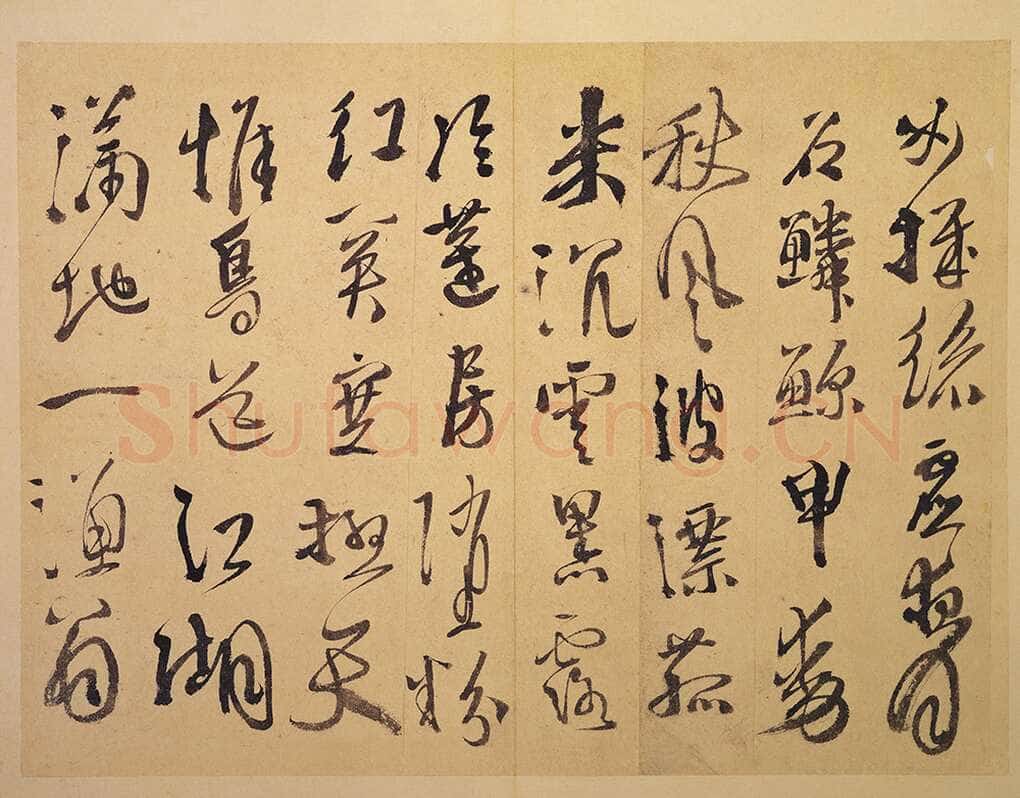 女機絲虛夜月
石鱗鯨甲動
秋風波漂菰
米沉雲黑露
冷蓮房墜粉
紅關塞極天
惟鳥道江湖
滿地一漁翁
Shufawang.CN